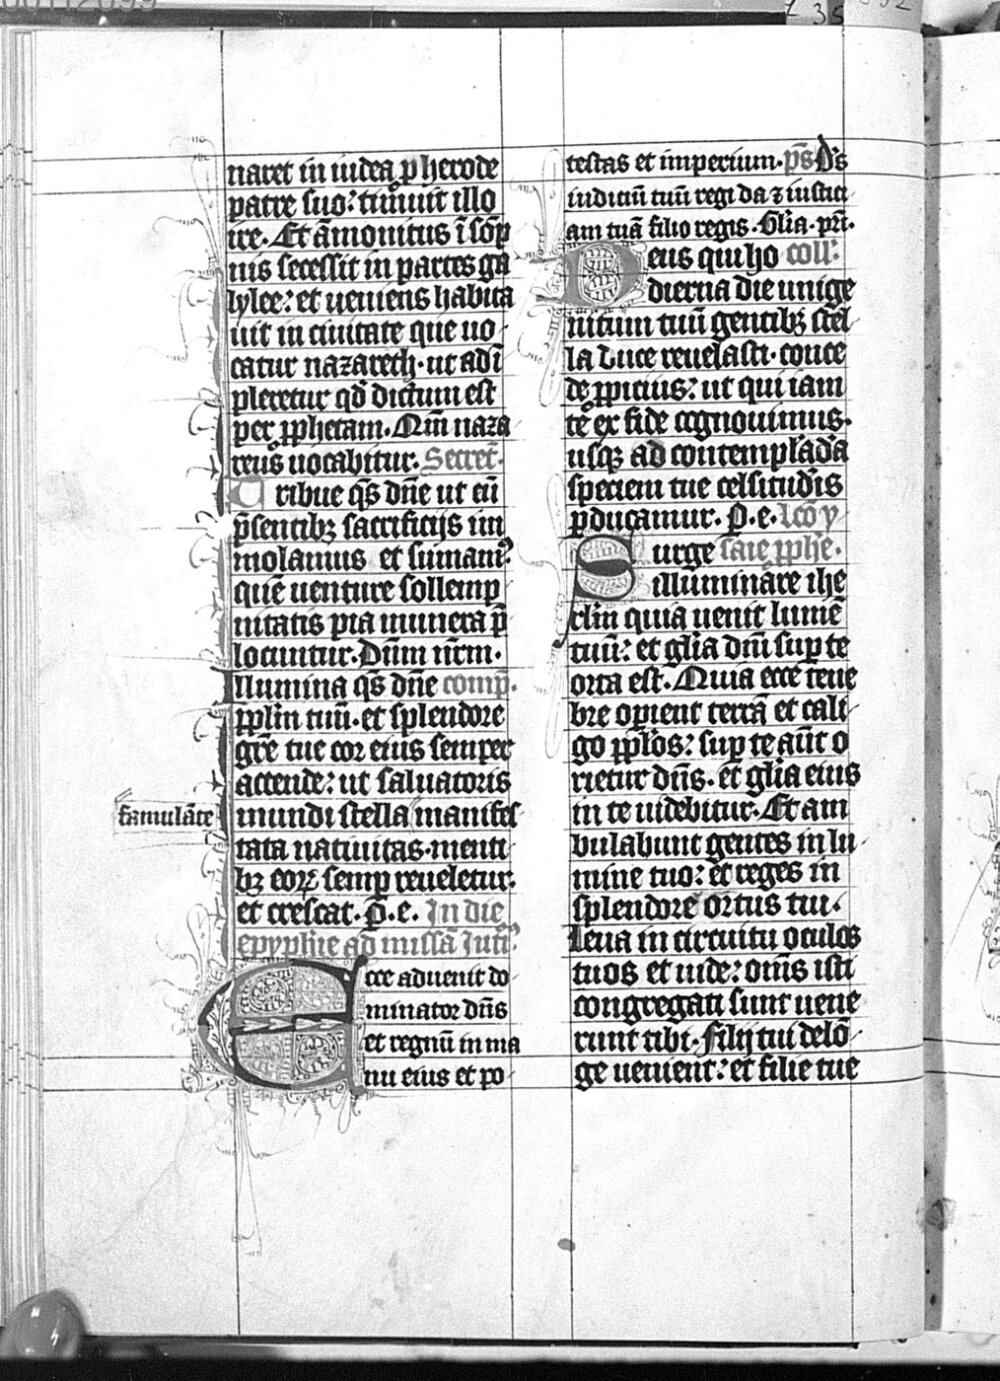 naret in iudea p herode
patre suo: timuit illo
ire. Et āmonitus ī sōp
nis secessit in partes ga
lylee: et ueniens habita
uit in ciuitate que uo
catur nazareth. ut adī
pleretur qd̄ dictum est
per ꝓphetam. Qm̄ naza
reus uocabitur. Secret̄.
Tribue qs̄ dn̄e ut eū
p̄sentibꝫ sacrificijs im
molamus et sumamꝰ
quē uenture sollemp
nitatis pia munera p̄
locuntur. Dūm nr̄m.
Illumina qs̄ dn̄e comp̄.
ꝓplm̄ tuū. et splendore
gr̄e tue cor eius semper
accende: ut saluatoris
famulāte
mundi stella manifes
tata natiuitas. menti
bꝫ eoꝝ semp reueletur.
et crescat. P. e. In die
epyphīe ad missā Intꝰ
Ecce aduenit do
minator dn̄s
et regnū in ma
nu eius et po
testas et imperium. p̄s D̄s
iudiciū tuū regi da ⁊ iustici
am tuā filio regis. Gl̄ia. pr̄i.
Deus qui ho coll:
dierna die unige
nitum tuū gentibꝫ stel
la duce reuelasti. conce
de ꝓpicius: ut qui iam
te ex fide cognouimus.
usqꝫ ad contemplādā
speciem tue celsitudīs
ꝑducamur. P. e. lc̄o y
Surge saie ꝓphe.
illuminare ihe
rlm̄ quia uenit lumē
tuū: et gl̄ia dn̄i sup te
orta est. Quia ecce tene
bre operient terrā et cali
go ꝓplos: sup te aūt o
rietur dn̄s. et gl̄ia eius
in te uidebitur. Et am
bulabunt gentes in lu
mine tuo: et reges in
splendore ortus tui.
Leua in circuitu oculos
tuos et uide: om̄s isti
congregati sunt uene
runt tibi. Filij tui de lō
ge uenient: et filie tue